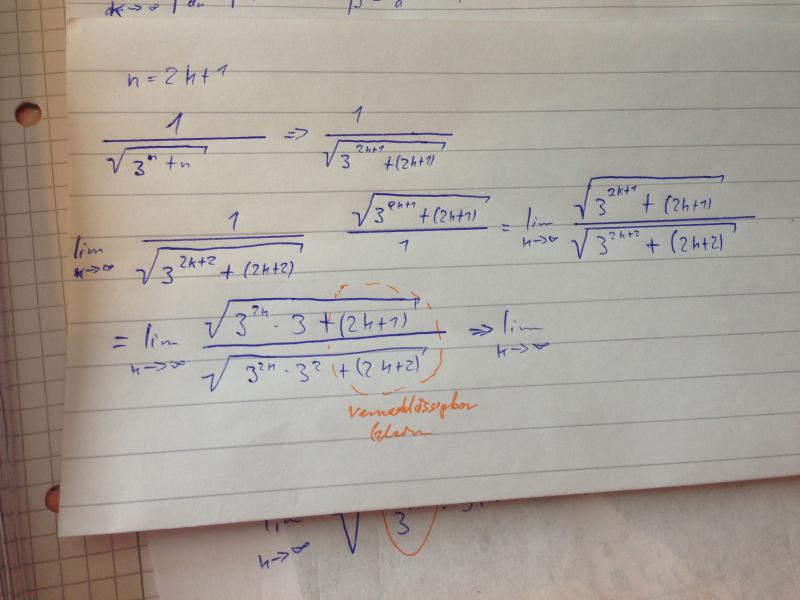 k→∞
n = 2k+1
1/√(3^n + n) => 1/√(3^(2k+1) + (2k+1))
lim k→∞ 1/√(3^(2k+2) + (2k+2)) √(3^(2k+1) + (2k+1))/1 = lim k→∞ √(3^(2k+1) + (2k+1))/√(3^(2k+2) + (2k+2))
= lim k→∞ √(3^(2k) · 3 + (2k+1))/√(3^(2k) · 3^2 + (2k+2)) => lim k→∞
vernachlässigbar
klein
lim k→∞ √ 3